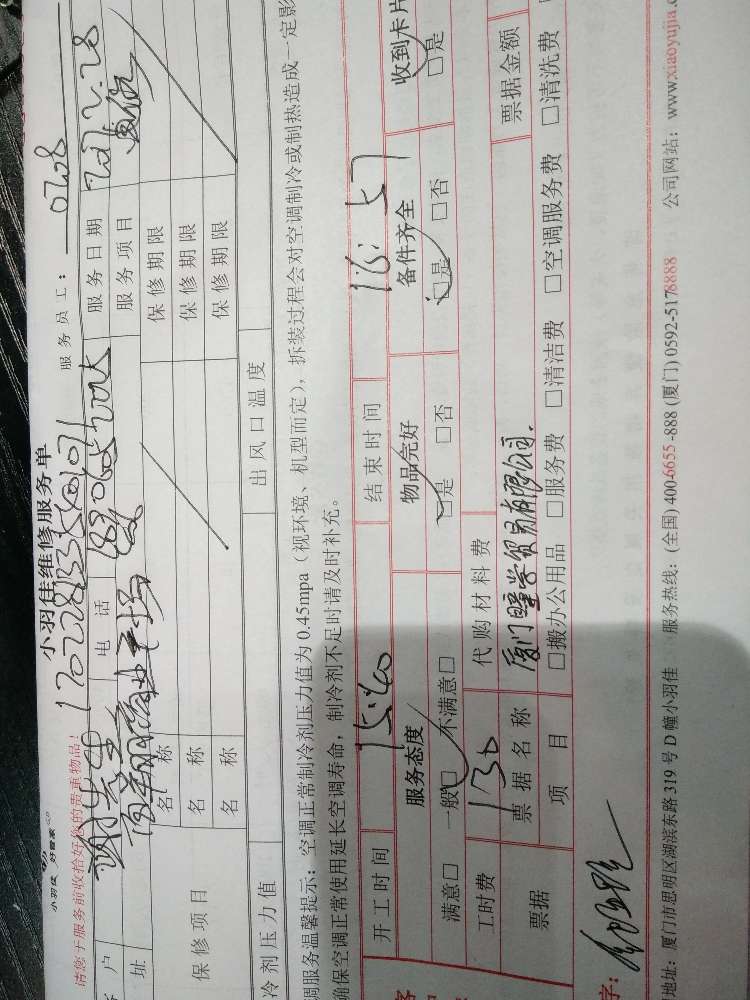 小羽佳 好管家
小羽佳维修服务单
170228133580101
请您于服务前收拾好您的贵重物品!
服务员工: 0708
户 电话 服务日期 2017.2.28
址 服务项目
保修项目 名称 保修期限
名称 保修期限
名称 保修期限
冷剂压力值 出风口温度
调服务温馨提示:空调正常制冷剂压力值为0.45mpa(视环境、机型而定),拆装过程会对空调制冷或制热造成一定影
确保空调正常使用延长空调寿命,制冷剂不足时请及时补充。
开工时间 15:40 结束时间 16:57
服务态度 物品完好 备件齐全 收到卡片
满意□ 一般□ 不满意□ □是 □否 □是 □否 □是
工时费 130 代购材料费
票据 票据名称 厦门瞳学贸易有限公司. 票据金额
项目 □搬办公用品 □服务费 □清洁费 □空调服务费 □清洗费
字:
地址:厦门市思明区湖滨东路319号D幢小羽佳 服务热线:(全国)400-6655-888 (厦门)0592-5178888 公司网站:www.xiaoyujia.